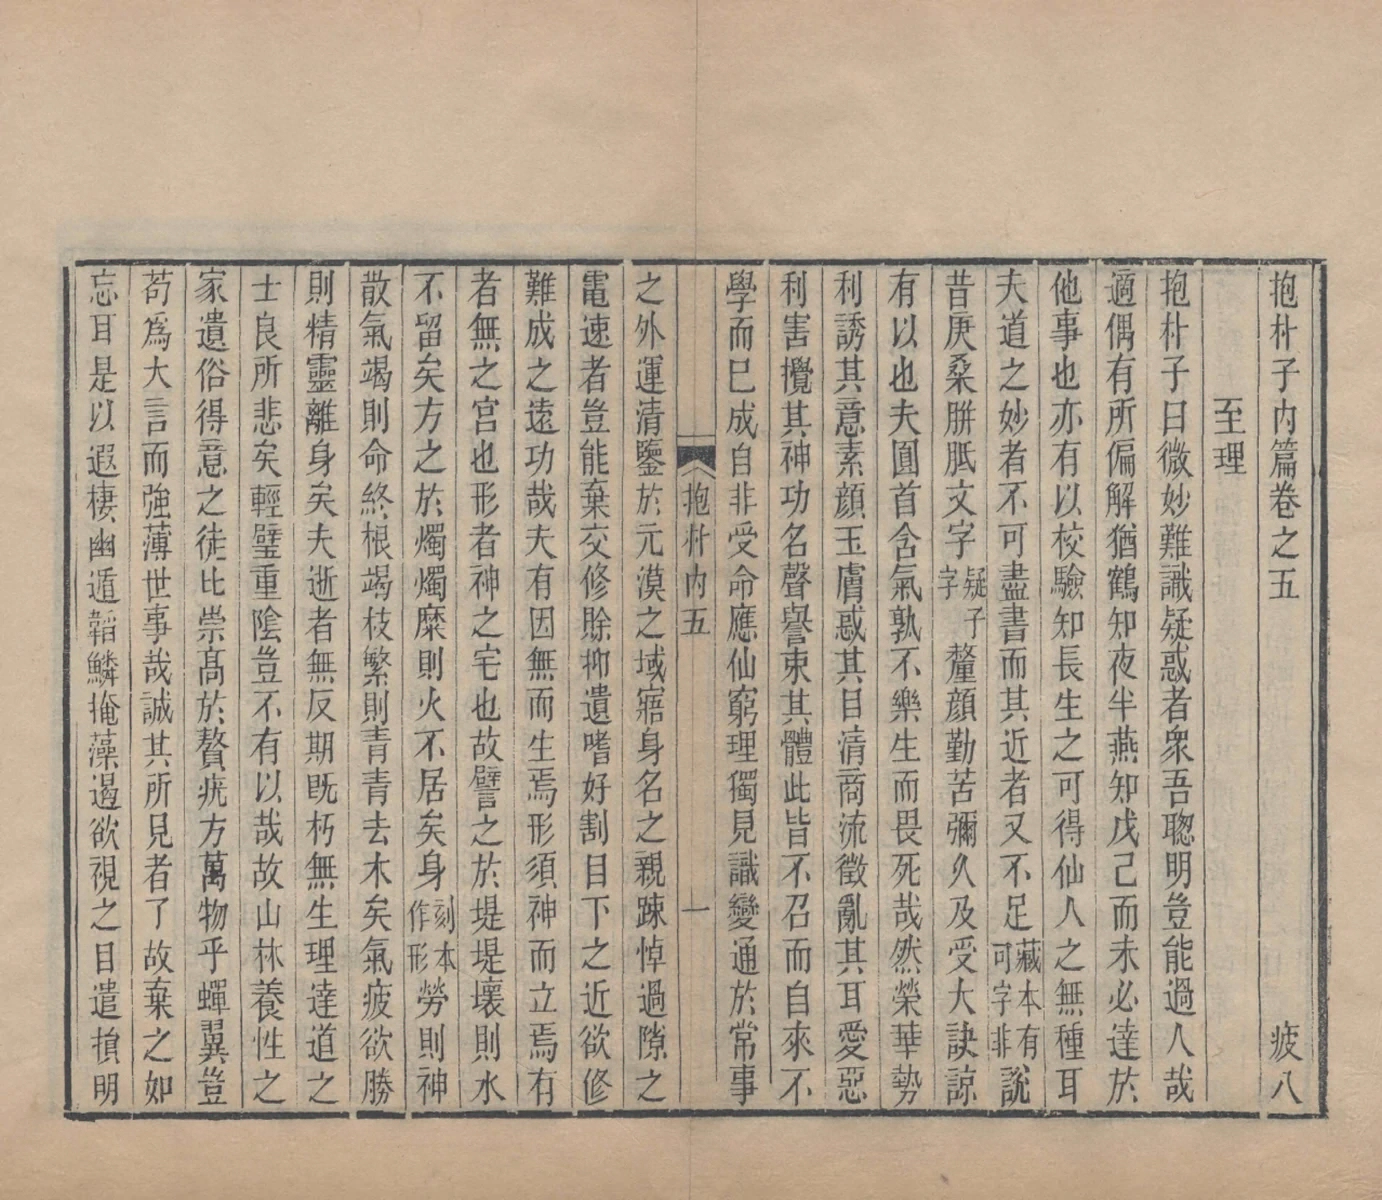 抱朴子內篇卷之五　疲八
至理
抱朴子曰微妙難識疑惑者衆吾聰明豈能過人哉
適偶有所偏解猶鶴知夜半燕知戊己而未必達於
他事也亦有以校驗知長生之可得仙人之無種耳
夫道之妙者不可盡書而其近者又不足藏本有可字非說
昔庚桑胼胝文字疑子字釐顏勤苦彌久及受大訣諒
有以也夫圓首含氣孰不樂生而畏死哉然榮華勢
利誘其意素顏玉膚惑其目清商流徵亂其耳愛惡
利害攪其神功名聲譽束其體此皆不召而自來不
學而已成自非受命應仙窮理獨見識變通於常事
抱朴內五　一
之外運清鑒於元漠之域寤身名之親踈悼過隙之
電速者豈能棄交修賒抑遺嗜好割目下之近欲修
難成之遠功哉夫有因無而生焉形須神而立焉有
者無之宮也形者神之宅也故譬之於堤堤壞則水
不留矣方之於燭燭糜則火不居矣身刻本作形勞則神
散氣竭則命終根竭枝繁則青青去木矣氣疲欲勝
則精靈離身矣夫逝者無反期既朽無生理達道之
士良所悲矣輕璧重陰豈不有以哉故山林養性之
家遺俗得意之徒比崇高於贅疣方萬物乎蟬翼豈
苟爲大言而強薄世事哉誠其所見者了故棄之如
忘耳是以遐棲幽遁韜鱗掩藻遏欲視之目遣損明